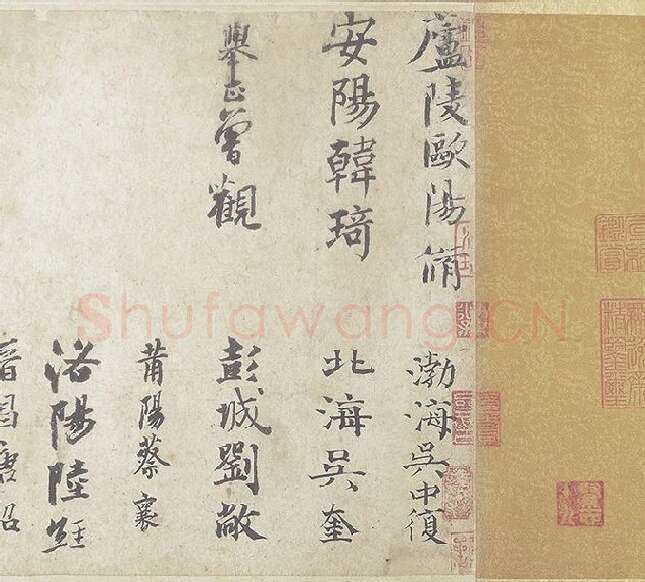 廬陵歐陽脩
渤海吳中復
安陽韓琦
北海吳奎
舉正曾觀
彭城劉敞
莆陽蔡襄
洛陽陸經
晉昌唐詔
Shufawang.CN